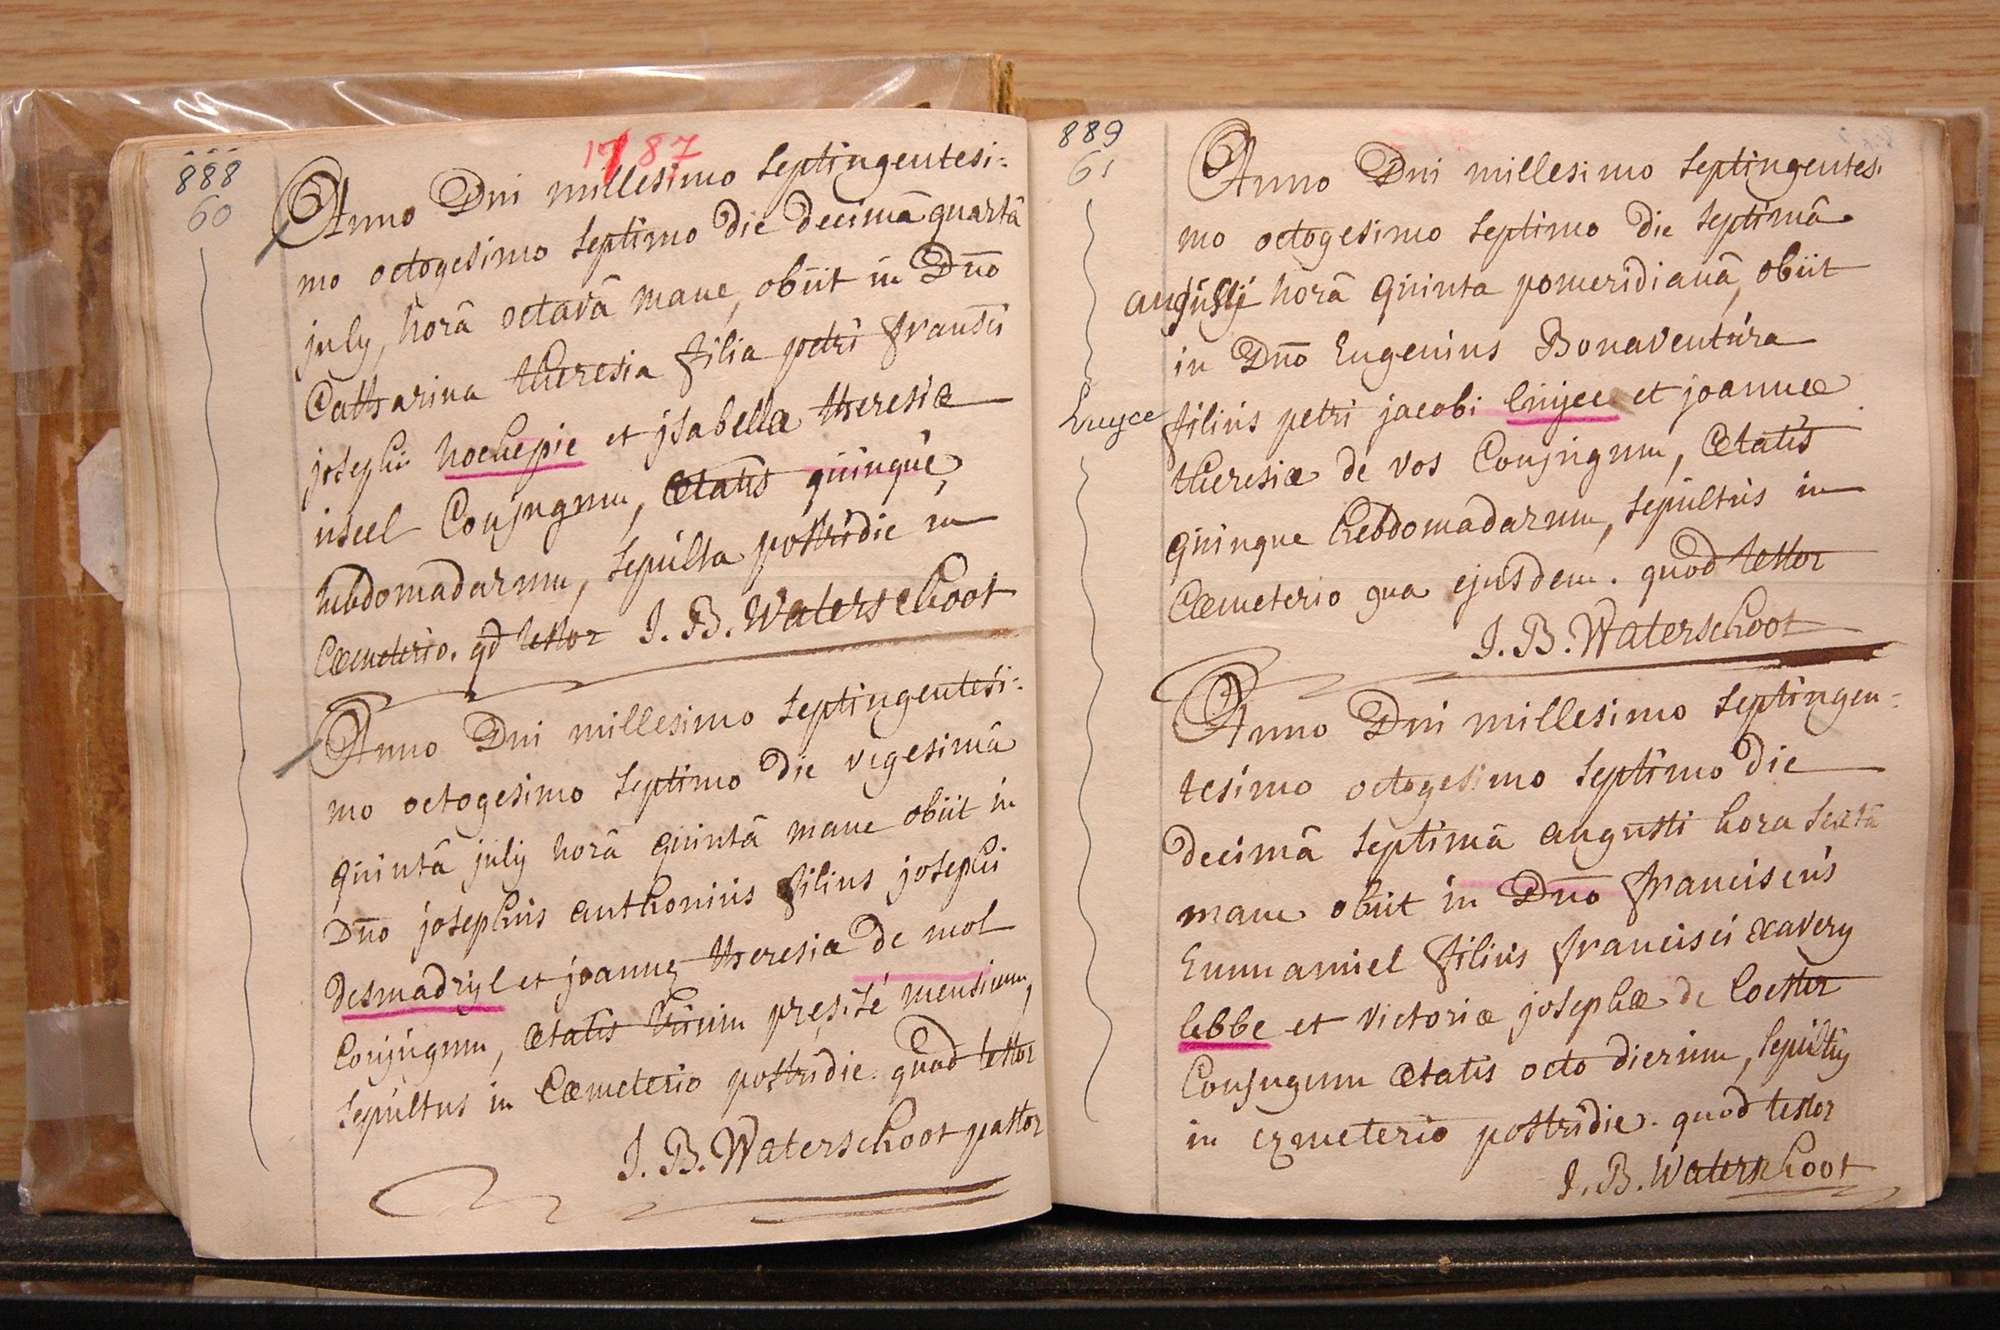 1787
888
60
Anno Dni millesimo septingentesi-
mo octogesimo septimo die decimâ quartâ
july, horâ octavâ mane, obiit in Dno
Catharina theresia filia petri
josephi hochepie et jsabella theresiæ
Conjugum, ætatis quinque
hebdomadarum, sepulta postridie in
Cæmeterio. qd testor J. B. Waterschoot
Anno Dni millesimo septingentesi-
mo octogesimo septimo die vigesimâ
quintâ july horâ quintâ mane obiit in
Dno josephus anthonius filius josephi
desmadryl et joannę theresiæ de mol
Conjugum, ætatis mensium,
sepultus in Cæmeterio postridie. quod testor
J. B. Waterschoot pastor
889
61
Anno Dni millesimo septingentesi
mo octogesimo septimo die septimâ
augusti horâ quinta pomeridianâ, obiit
in Dno Eugenius Bonaventura
Luyce
filius petri jacobi luyce et joannæ
theresiæ de vos Conjugum, ætatis
quinque hebdomadarum, sepultus in
Cæmeterio 9na ejusdem. quod testor
J. B. Waterschoot
Anno Dni millesimo septingen-
tesimo octogesimo septimo die
decimâ septimâ augusti hora sextâ
mane obiit in Dno franciscus
Emmanuel filius francisci xavery
lebbe et victoriæ josephæ de Coester
Conjugum ætatis octo dierum, sepultus
in cęmeterio postridie. quod testor
J. B. Waterschoot